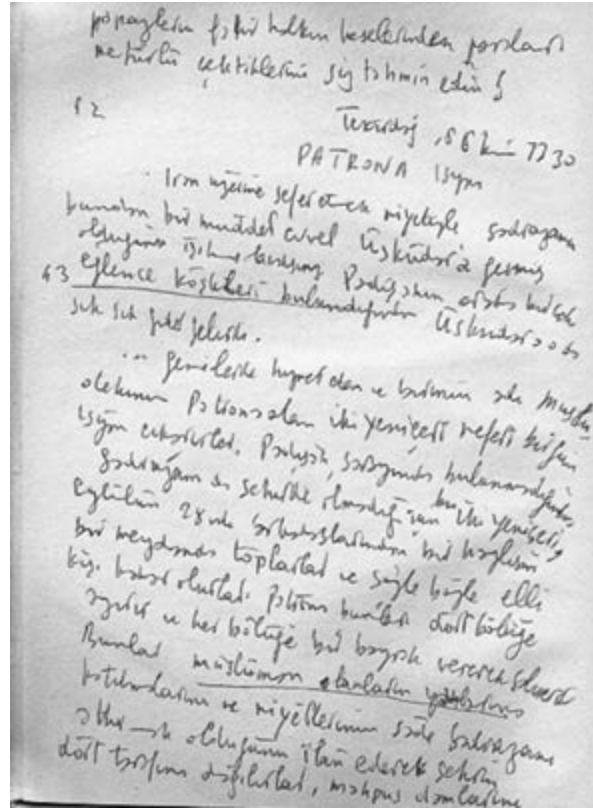 papazların fakir halkın keselerinden paraları
ne türlü çektiklerini siz tahmin edin
12
Tekirdağ, 1730
PATRONA isyanı
İran üzerine sefer etmek niyetiyle sadrazam
bundan bir müddet evvel Üsküdar'a geçmiş
olduğundan Padişahın orada birçok
43 eğlence köşkleri bulunduğundan Üsküdar'a o da
sık sık gidip gelirdi.
... gemilerde hizmet eden ve birinin adı Muslu
ötekinin Patrona olan iki yeniçeri neferi bugün
isyan çıkardılar. Padişah sarayında bulunmadığından
Sadrazam da şehirde olmadığından bu iki yeniçeri,
Eylülün 28 inde arkadaşlarından bir kısmını
bir meydanda topladılar ve şöyle böyle elli
kişi kadar oldular. Patrona bunları dört bölüğe
ayırdı ve her bölüğe bir bayrak vererek
Bunlar müslüman olanların
ve niyetlerinin sade Sadrazamı
atmak olduğunu ilan ederek şehrin
dört tarafına dağıldılar, mahpus damlarını